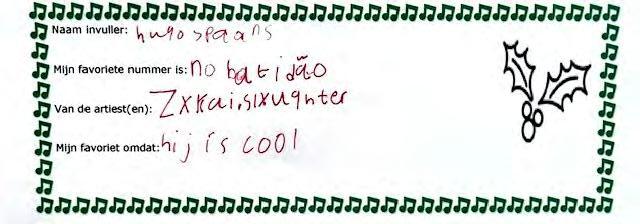 Naam invuller: hugo spaans
Mijn favoriete nummer is: no batidão
Van de artiest(en): Zxkai, slxughter
Mijn favoriet omdat: hij is cool